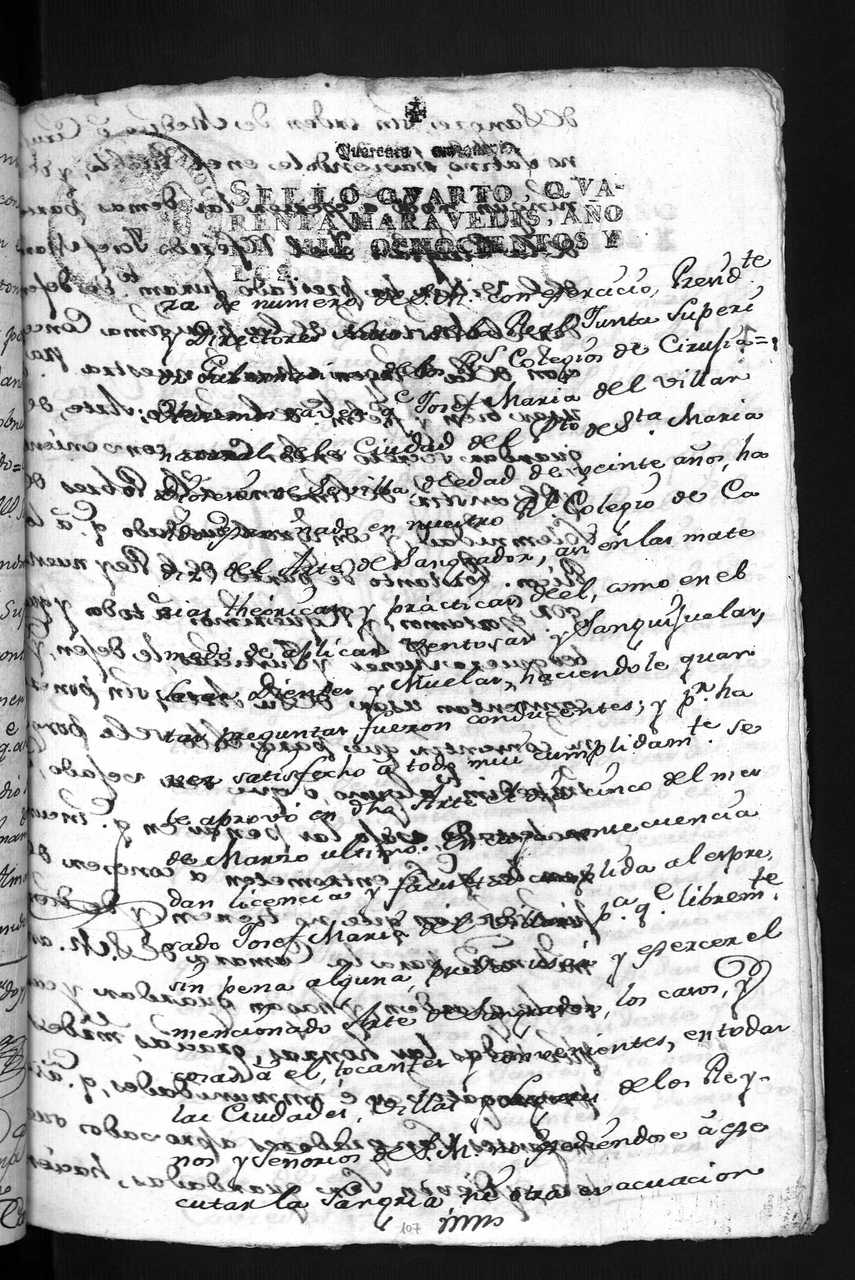 Quarenta maravedis.
SELLO QVARTO, QVA-
RENTA MARAVEDIS, AÑO
DE MIL OCHOCIENTOS Y
za de numero de S.M. con exercicio, Presid.te
y Directores natos de la Real Junta Superi
or Gubernativa de los R.s Colegios de Cirugia=:
Hacemos saver q.e Josef Maria del Villar
natural de la Ciudad del Pto de S.ta Maria
Provincia de Sevilla, de edad de veinte años, ha
sido examinado en nuestro Rl Colegio de Ca
diz del Arte de Sangrador, asi en las mate
rias theóricas y prácticas de el, como en el
modo de aplicar Ventosas y Sanguijuelas,
sacar Dientes y Muelas, haciendole quan
tas preguntas fueron conducentes; y p.r ha
ver satisfecho á todo mui cumplidam.te se
le aprovó en dho Arte el dia cinco del mes
de Marzo ultimo. En cuya consecuencia
dan licencia y facultad cumplida al espre
sado Josef Maria del Villar p.a q.e librem.te
sin pena alguna, pueda usar y egercer el
mencionado Arte de Sangrador, los casos, y
cosas á el, tocantes y convenientes, en todas
las Ciudades, Villas y Lugares de los Rey-
nos y Señorios de S.M. no excediendose á ege
cutar la Sangria ni otra evacuacion
107